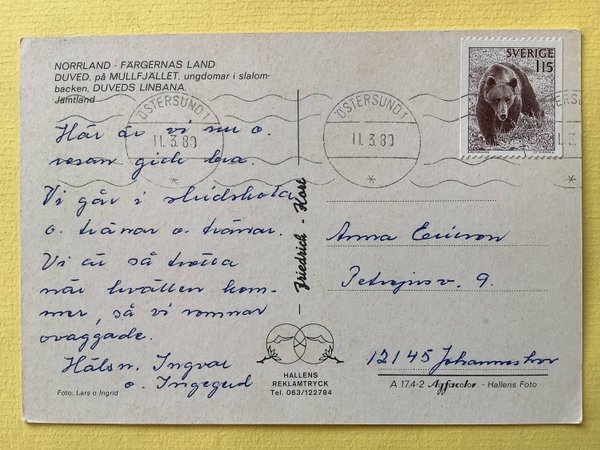 NORRLAND - FÄRGERNAS LAND
DUVED. på MULLFJÄLLET, ungdomar i slalom-
backen. DUVEDS LINBANA.
Jämtland
SVERIGE
115
ÖSTERSUND 1
11.3.80
ÖSTERSUND 1
11.3.80
ÖSTERSU
Här är vi nu o.
resan gick bra.
Vi går i skidskola
o. tränar o. tränar.
Vi är så trötta
när kvällen kom-
mer, så vi somnar
ovaggade.
Hälsn. Ingvar
o. Ingegerd
Friedrich - Kort
Anna Ericson
Petrejusv. 9.
12145 Johanneshov
HALLENS
REKLAMTRYCK
Tel. 063/122784
Foto: Lars o Ingrid
A 17.4-2 Agfacolor - Hallens Foto